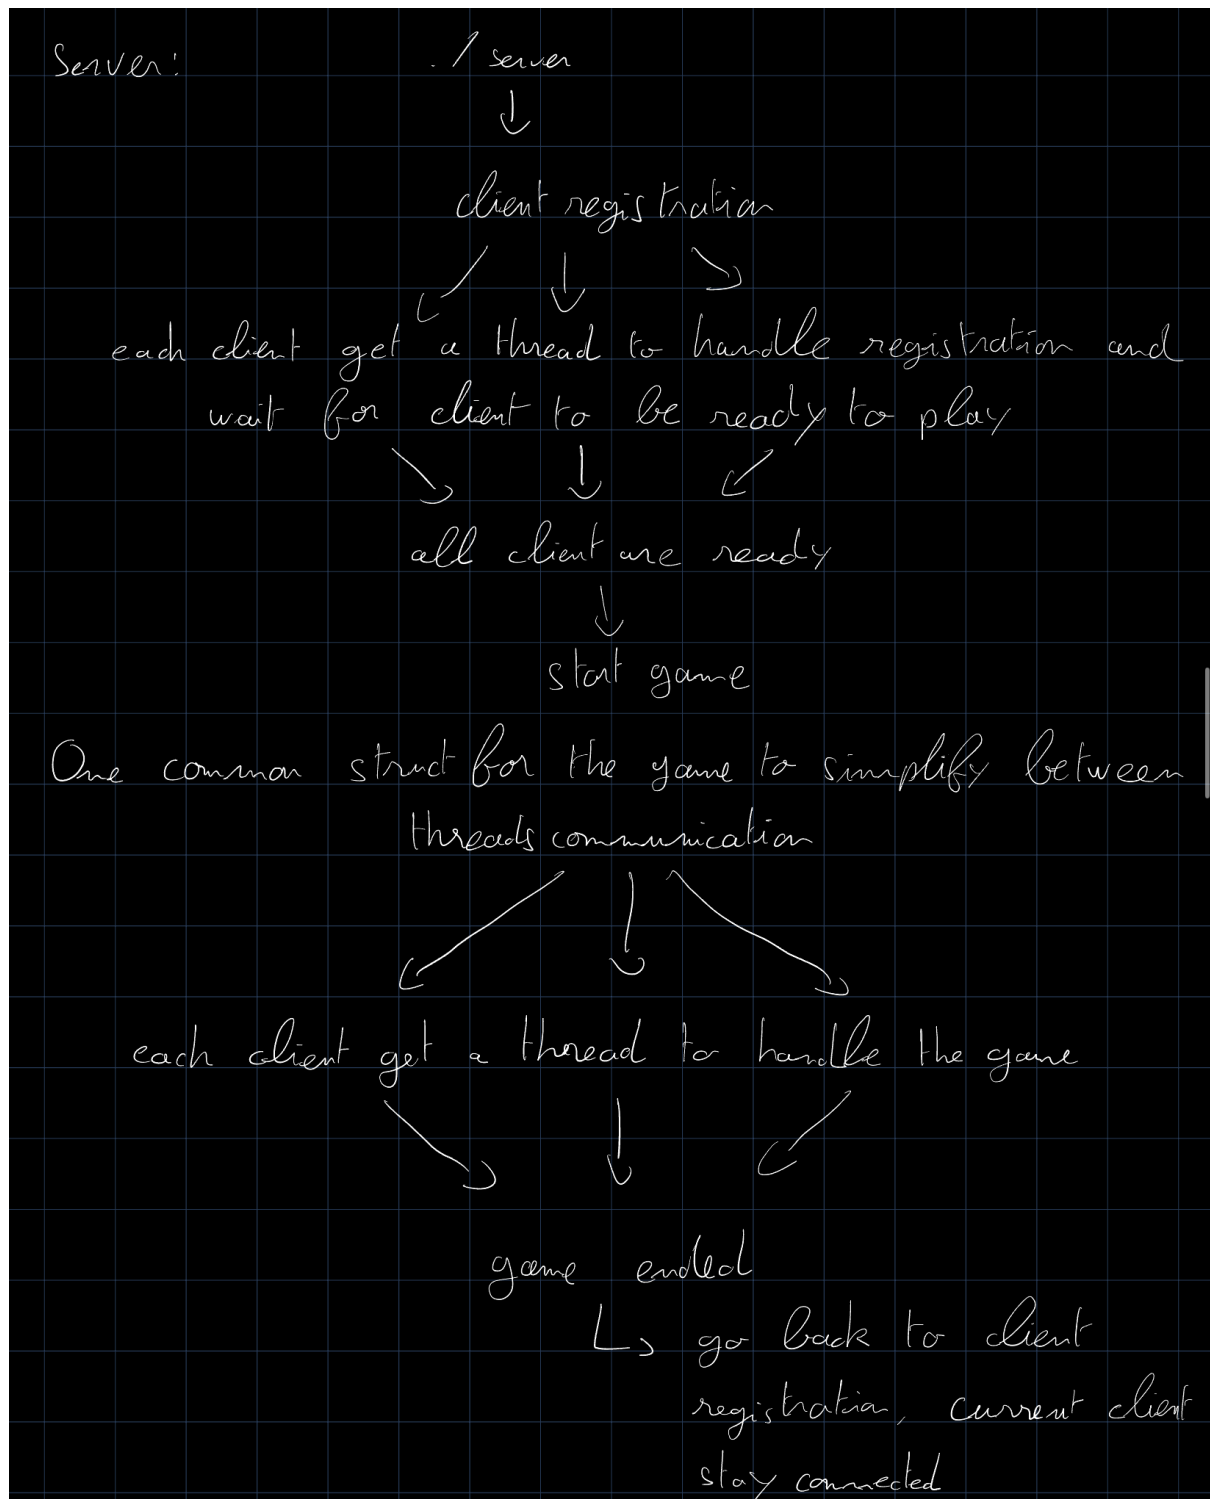 Server: ./server
client registration
each client get a thread to handle registration and
wait for client to be ready to play
all client are ready
start game
One common struct for the game to simplify between
threads communication
each client get a thread to handle the game
game ended
go back to client
registration, current client
stay connected